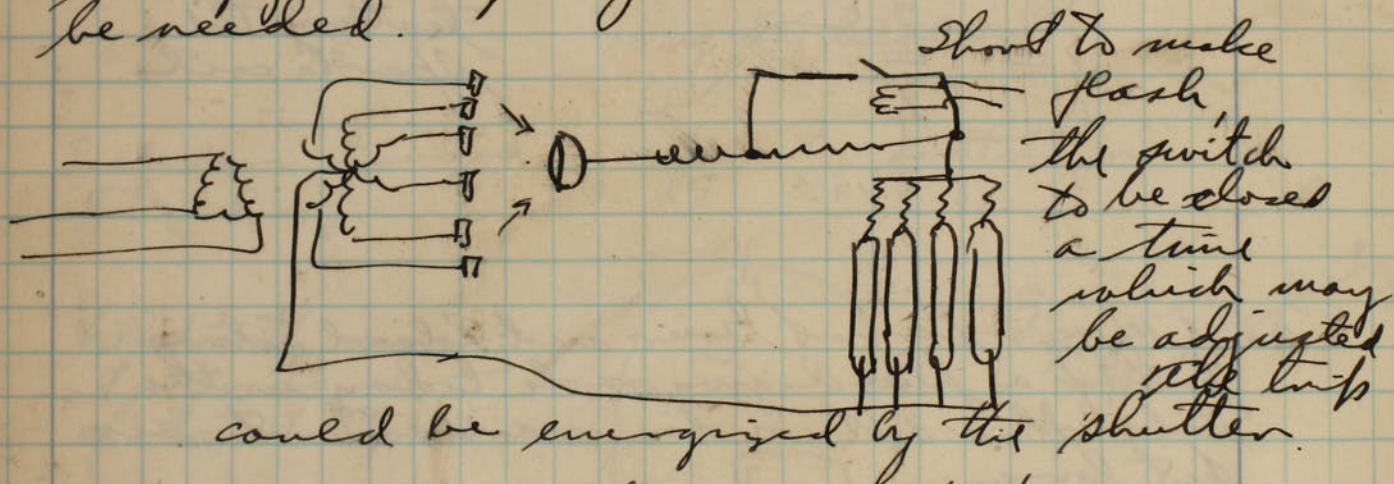 be needed.
Short to make
flash,
the switch
to be closed
a time
which may
be adjusted
trip
could be energized by the shutter.